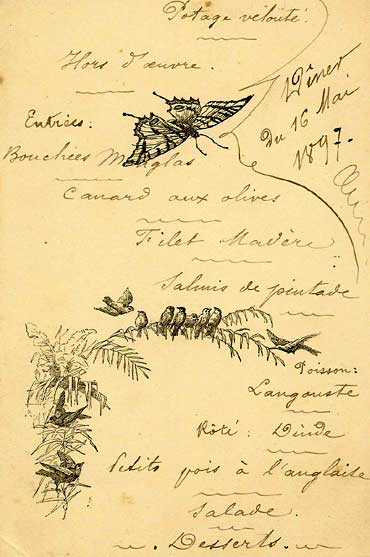 Potage velouté.
Hors d'œuvre.
Dîner
Du 16 Mai
1897.
Entrées:
Bouchées Monglas
Canard aux olives
Filet Madère
Salmis de pintade
Poisson:
Langouste
Rôti: Dinde
Petits pois à l'anglaise
Salade.
Desserts.